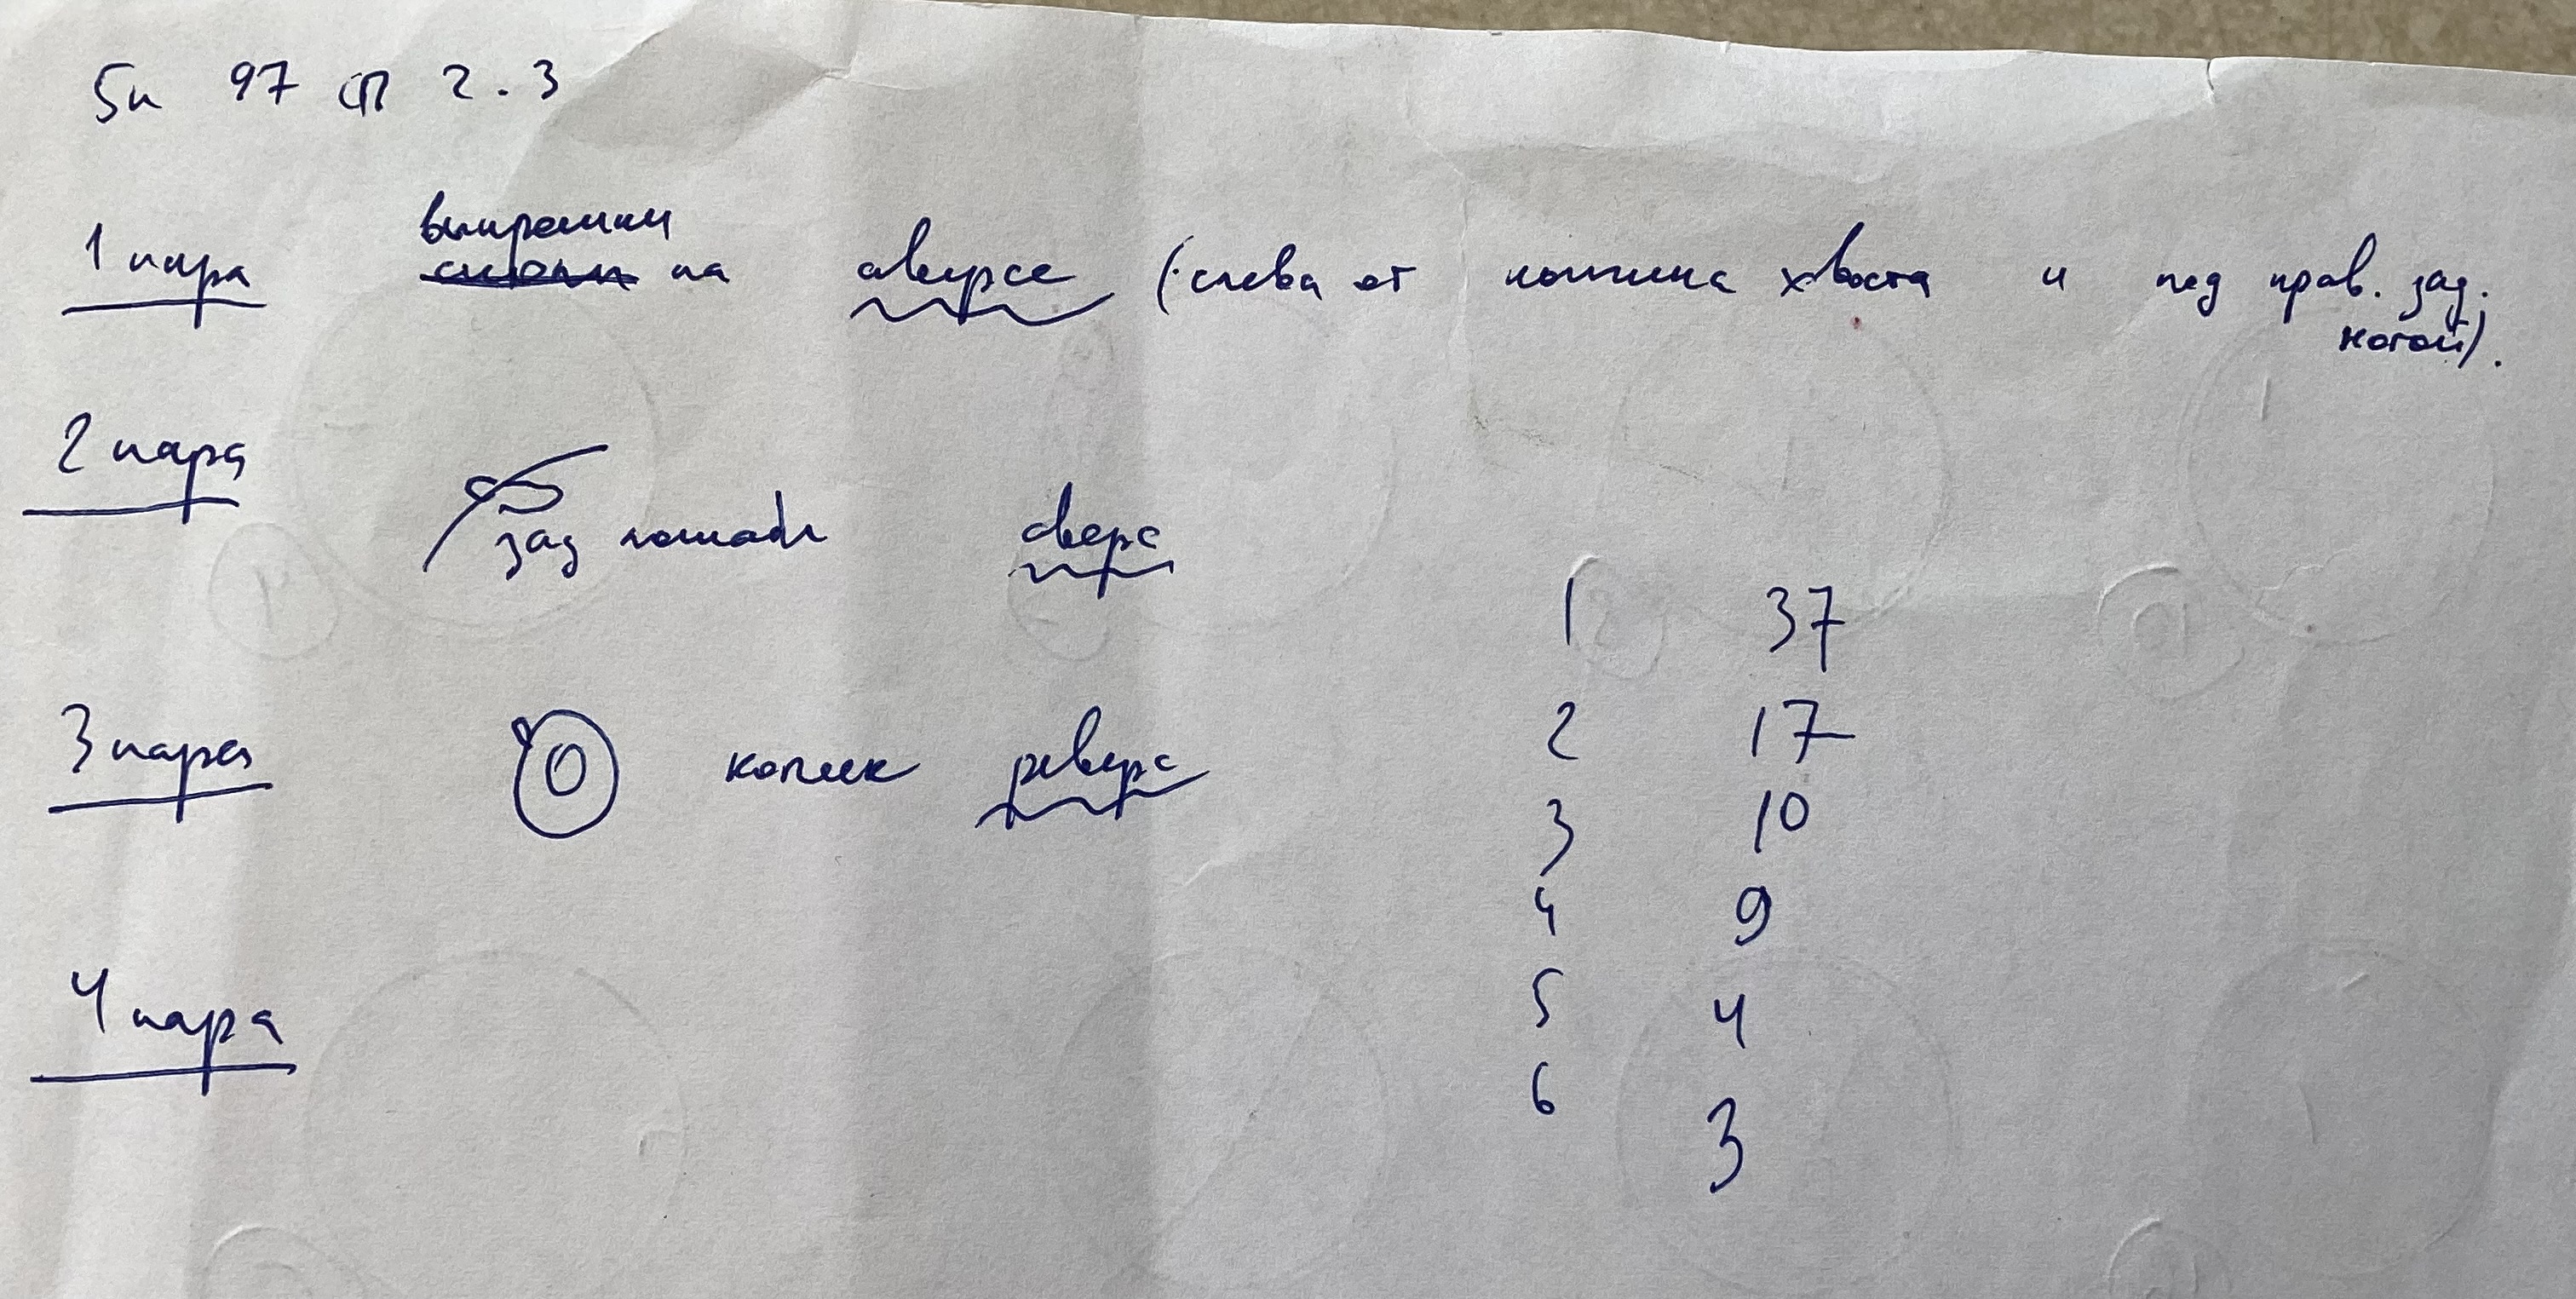 5к 97 СП 2.3
выкрошки
1 пара на аверсе (слева от кончика хвоста и под прав. зад.
ногой).
2 пара
зад лошади аверс
1 37
3 пара О копеек реверс
2 17
3 10
4 9
4 пара
5 4
6 3